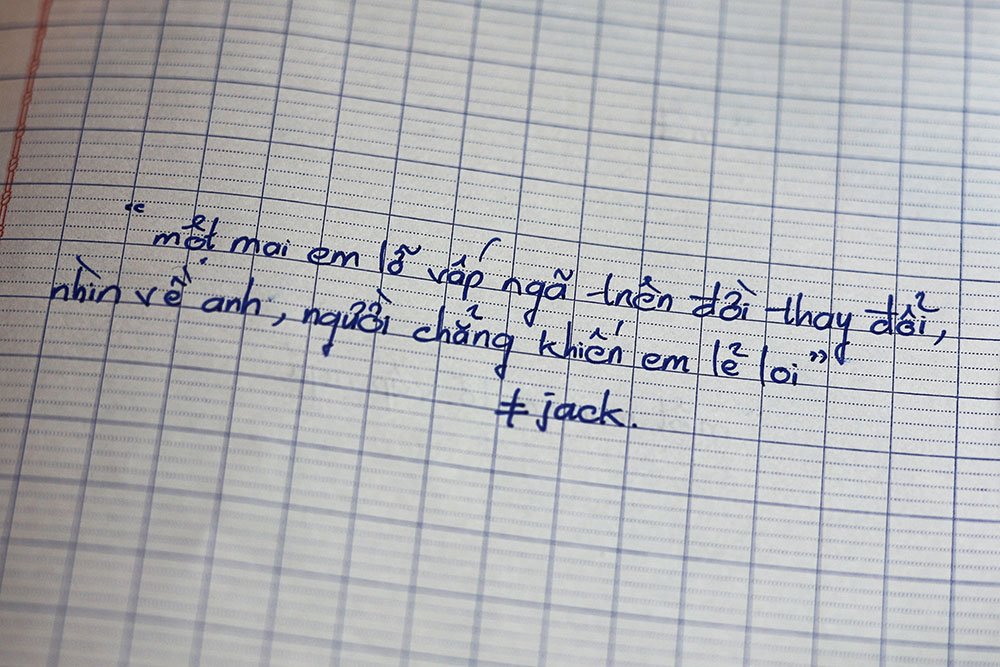 "một mai em lỡ vấp ngã trên đời thay đổi,
nhìn về anh, người chẳng khiến em lẻ loi"
#jack.